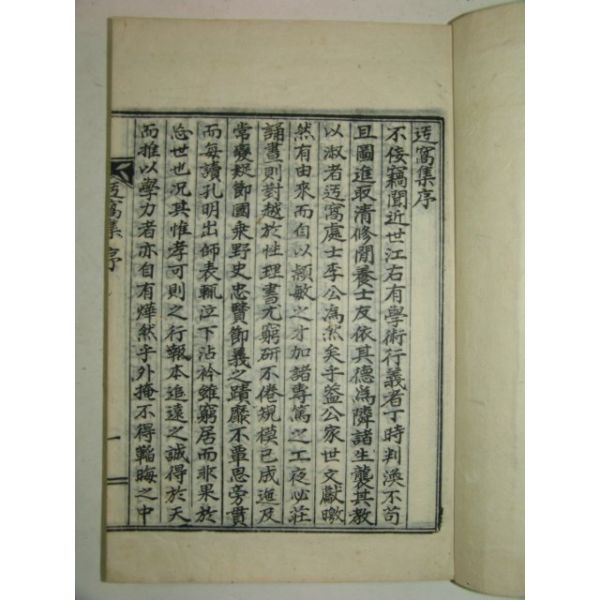 迃窩集序
不佞竊聞近世江右有學術行義者丁時判渙不苟
且圖進取清修閒養士友依其德爲隣諸生襲其教
以淑者迃窩處士李公爲然矣乎盖公家世文獻皦
然有由來而自以穎敏之才加諸專篤之工夜必莊
誦晝則對越於性理書尤窮研不倦規模已成迤及
常變疑節國乘野史忠賢節義之蹟靡不單思旁貫
而每讀孔明出師表輒泣下沾衿雖窮居而非果於
忘世也況其惟孝可則之行報本追遠之誠得於天
而推以學力者亦自有燁然乎外掩不得韜晦之中
迃窩集 序
一